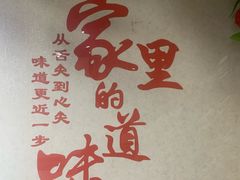 家里
的道
味
从舌尖到心尖
味道更近一步